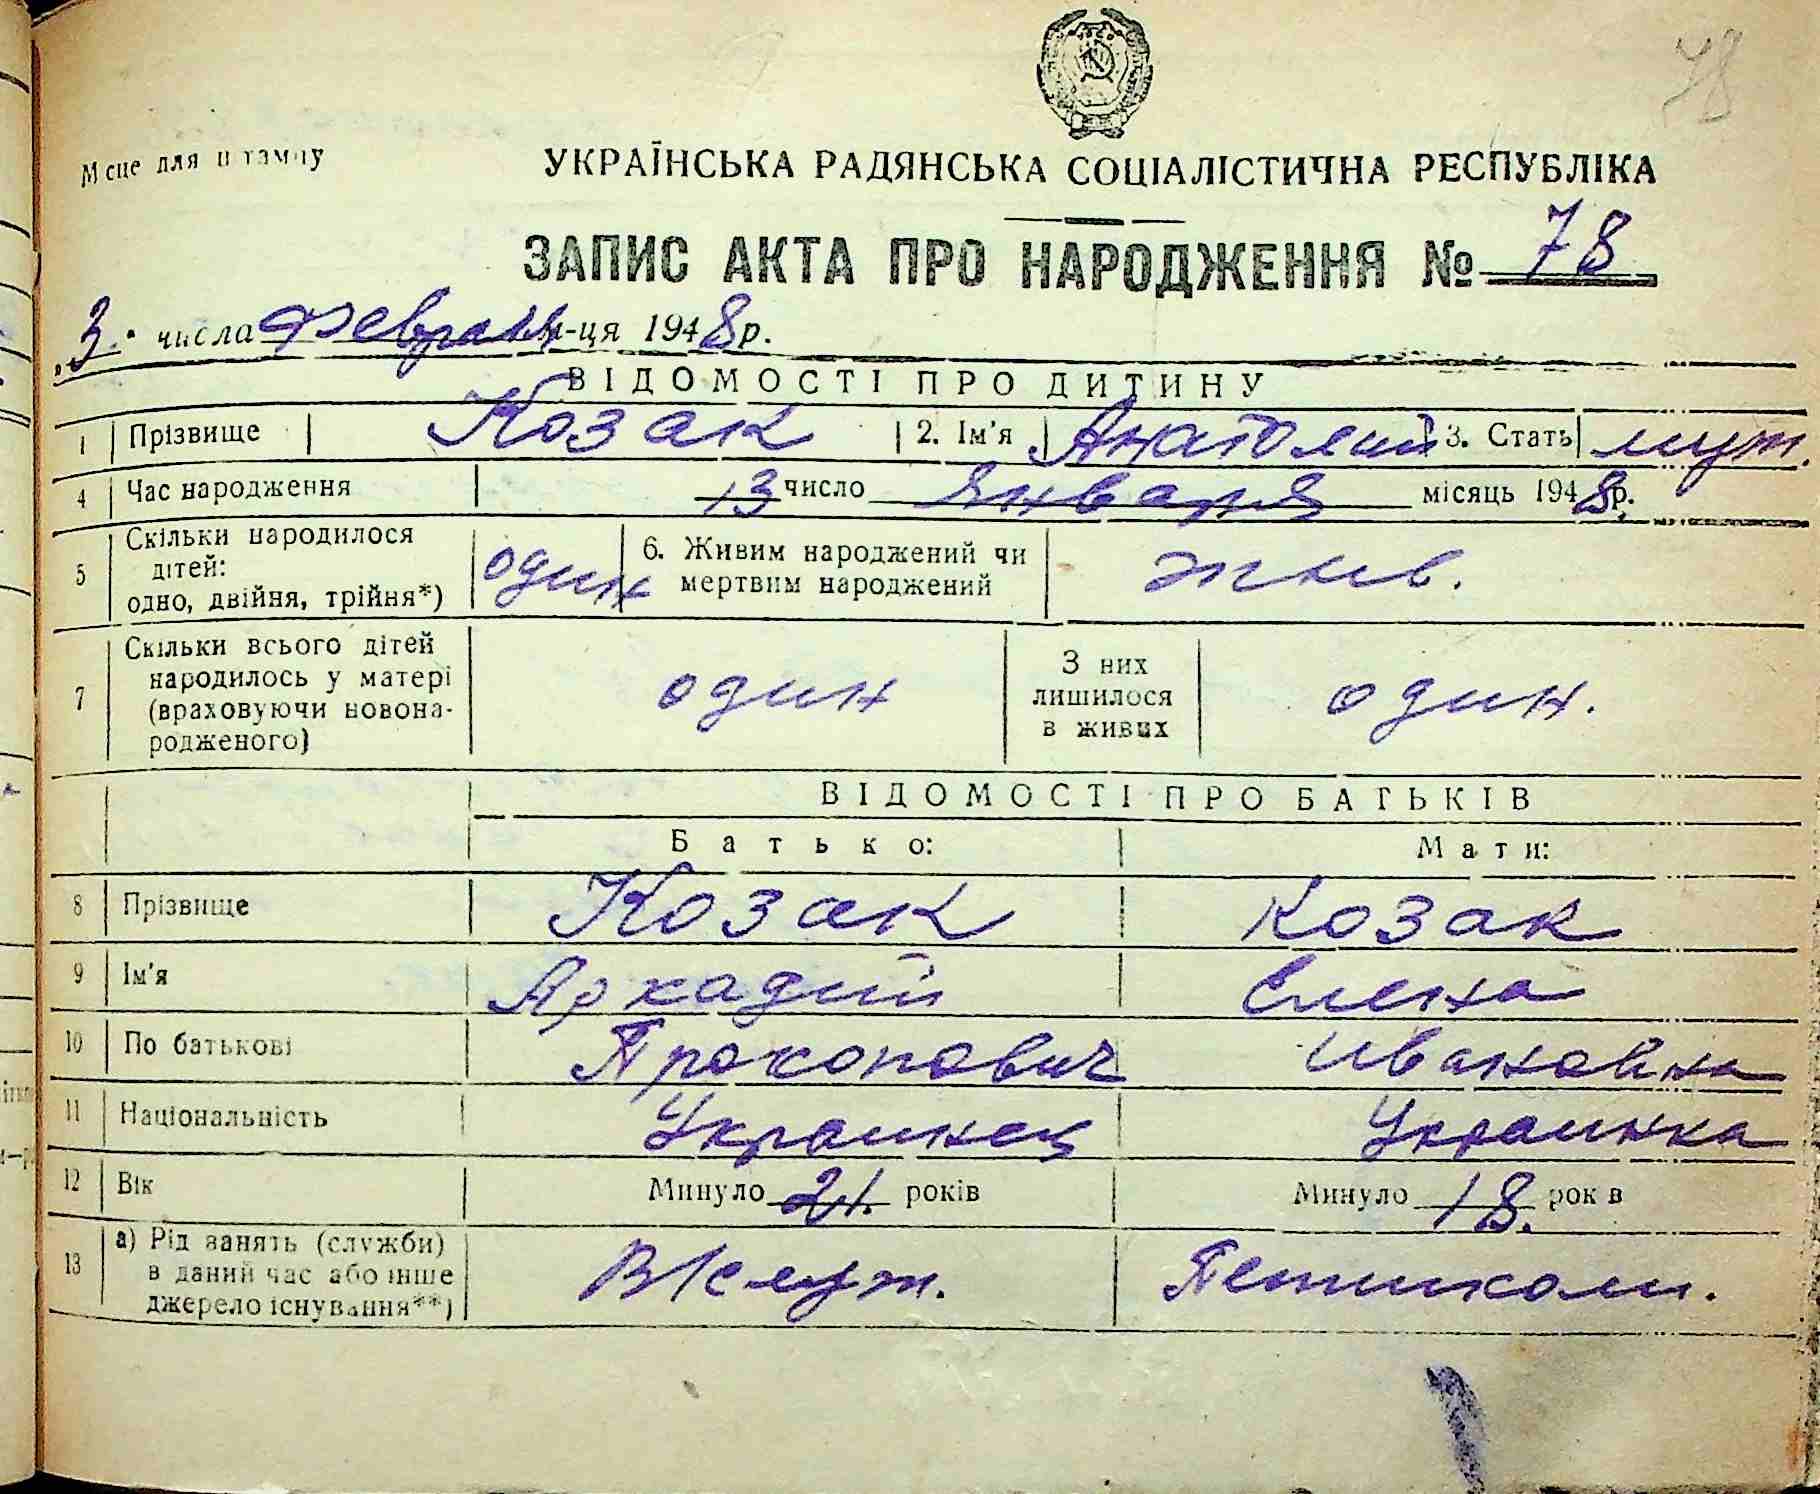 78
Місце для штампу
УКРАЇНСЬКА РАДЯНСЬКА СОЦІАЛІСТИЧНА РЕСПУБЛІКА
ЗАПИС АКТА ПРО НАРОДЖЕННЯ № 78
„3" числа Февраля м-ця 1948 р.
ВІДОМОСТІ ПРО ДИТИНУ
1 Прізвище Козак 2. Ім'я Анатолий 3. Стать муж.
4 Час народження 13 число Января місяць 1948 р.
5 Скільки народилося
дітей:
одно, двійня, трійня*) один
6. Живим народжений чи
мертвим народжений жив.
7 Скільки всього дітей
народилось у матері
(враховуючи новона-
родженого) один
З них
лишилося
в живих один.
ВІДОМОСТІ ПРО БАТЬКІВ
Батько: Мати:
8 Прізвище Козак Козак
9 Ім'я Аркадий Елена
10 По батькові Прокопович Ивановна
11 Національність Украинец Украинка
12 Вік Минуло 21. років Минуло 18. років
13 а) Рід занять (служби)
в даний час або інше
джерело існування**)
В/служ.